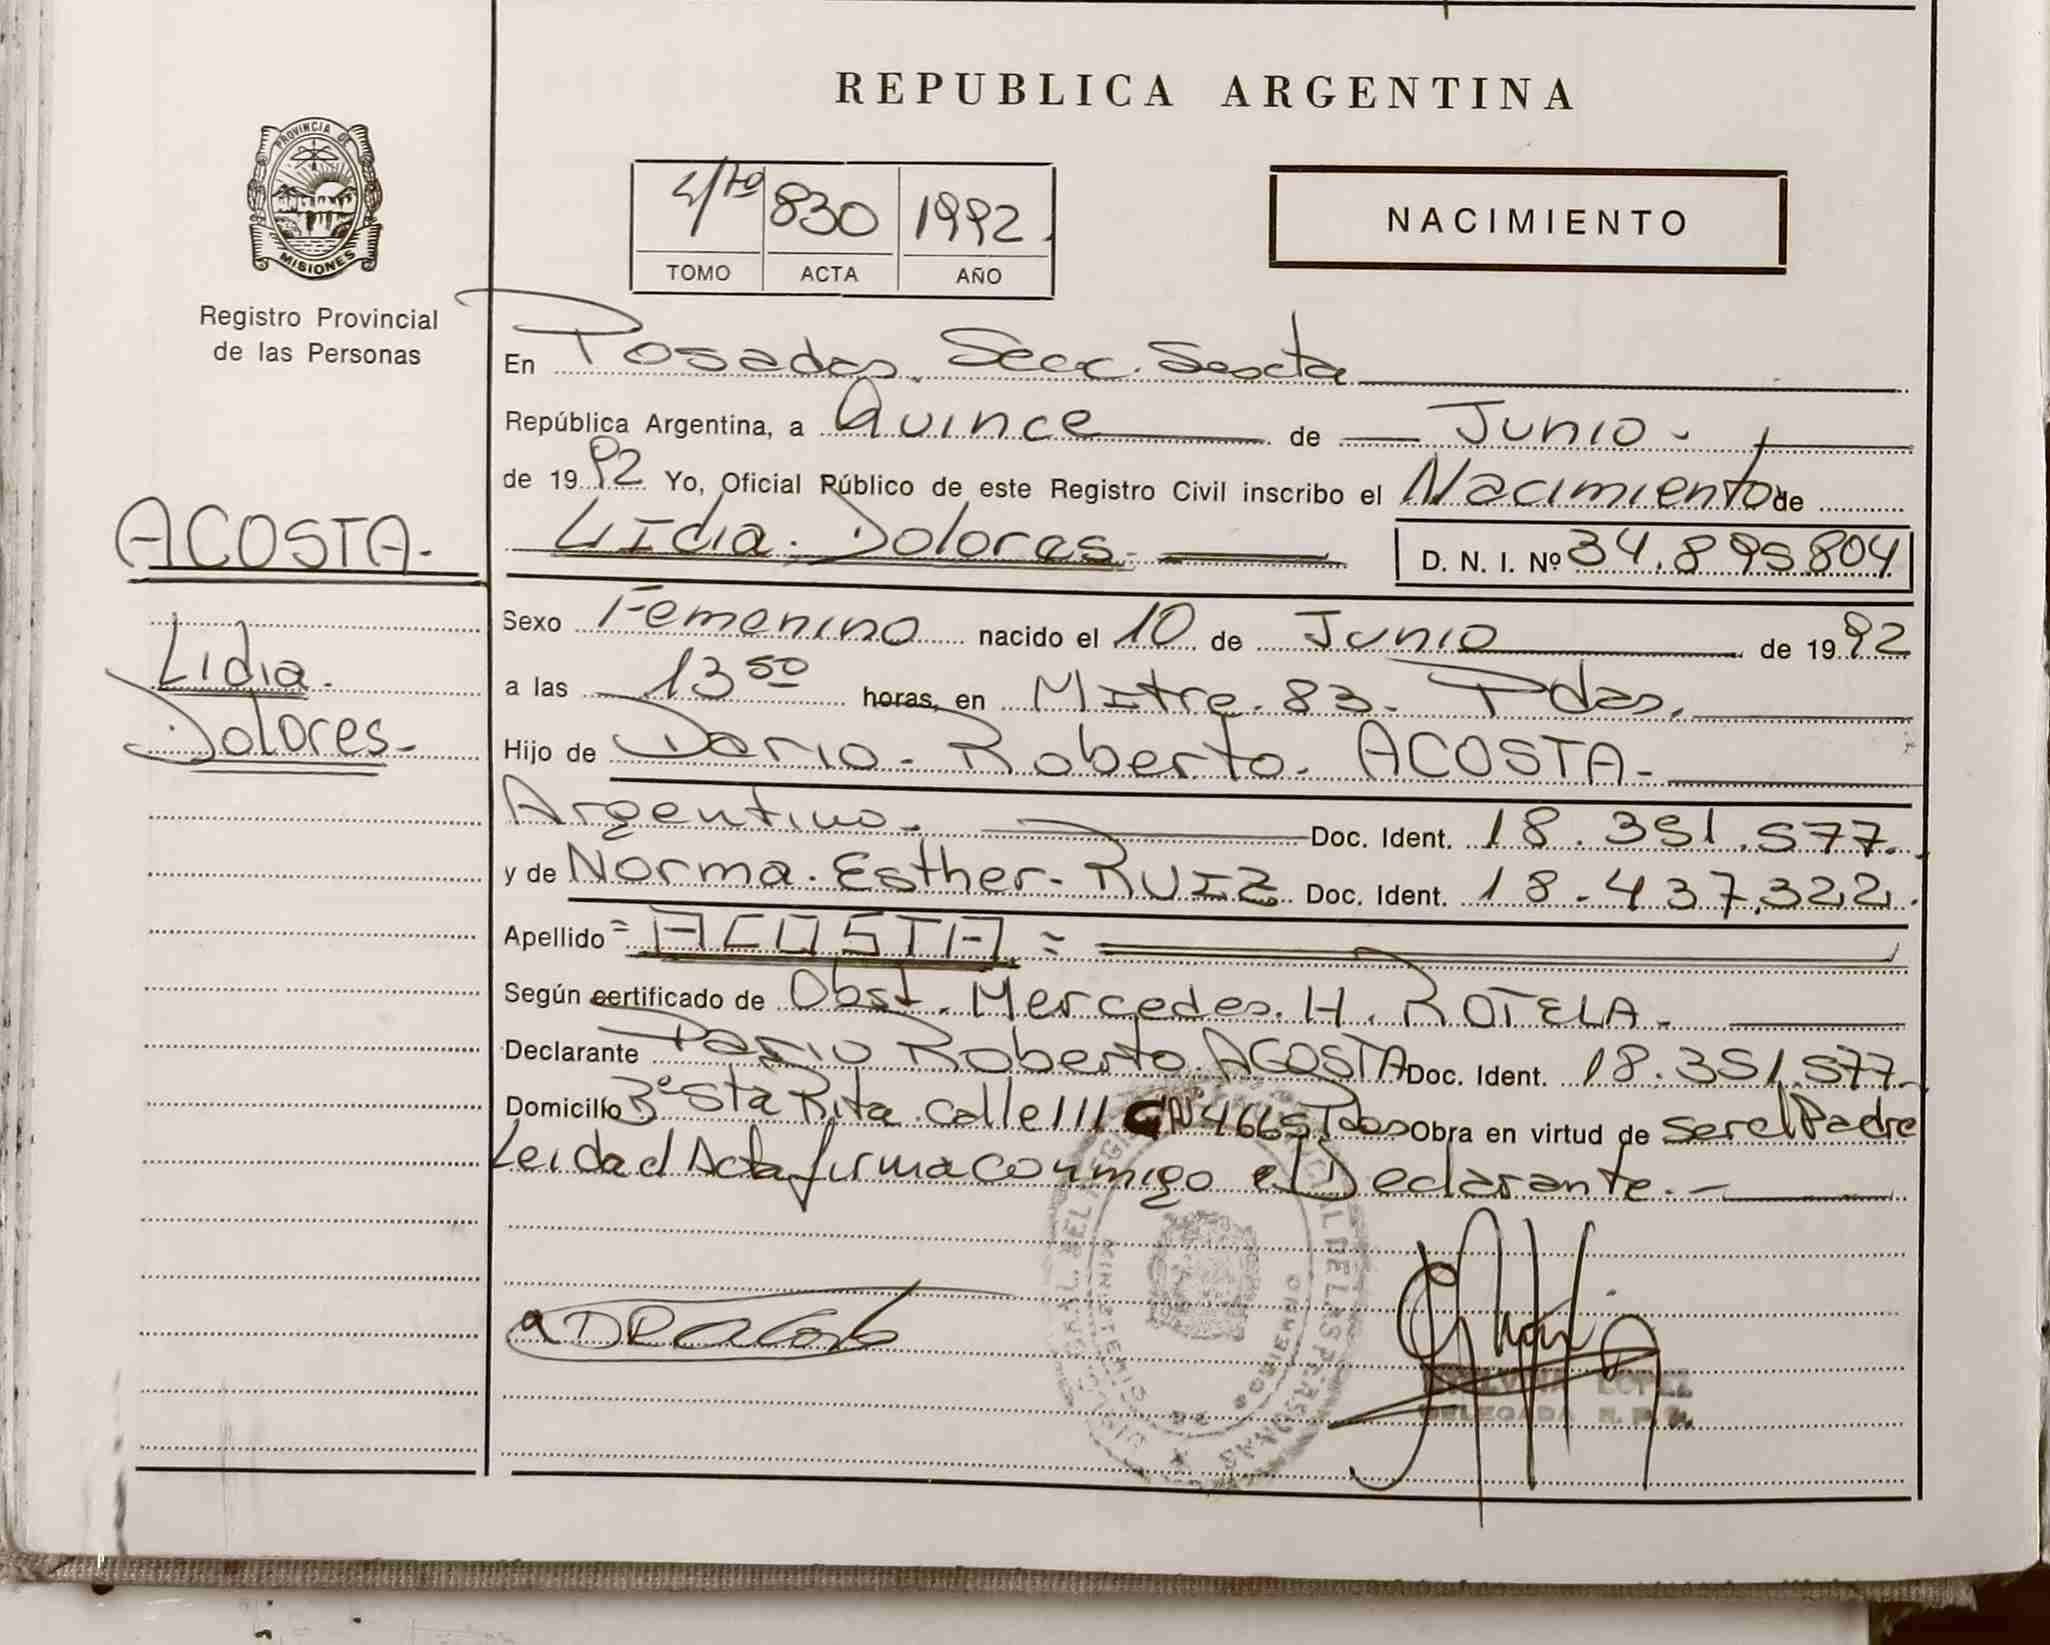 REPUBLICA ARGENTINA
PROVINCIA DE
MISIONES
Registro Provincial
de las Personas
4/to 830 1992
TOMO ACTA AÑO
NACIMIENTO
En Posadas. Secc. Sexta
República Argentina, a Quince de Junio -
de 1992 Yo, Oficial Público de este Registro Civil inscribo el Nacimiento de
Lidia. Dolores. D. N. I. Nº 34.895.804
ACOSTA.-
Lidia.
Dolores.-
Sexo Femenino nacido el 10 de Junio de 1992
a las 13 50 horas, en Mitre. 83. Pdas.
Hijo de Dario. Roberto. ACOSTA-
Argentino. Doc. Ident. 18.351.577.
y de Norma. Esther. RUIZ Doc. Ident. 18.437.322.
Apellido = ACOSTA =
Según certificado de Obst. Mercedes. H. ROTELA.
Declarante Dario Roberto. ACOSTA Doc. Ident. 18.351.577.
Domicilio Bº Sta Rita. calle 111 C Nº 4665 Pdas Obra en virtud de ser el Padre
Leida el Acta firma conmigo el Declarante.-
LOPEZ
DELEGADA